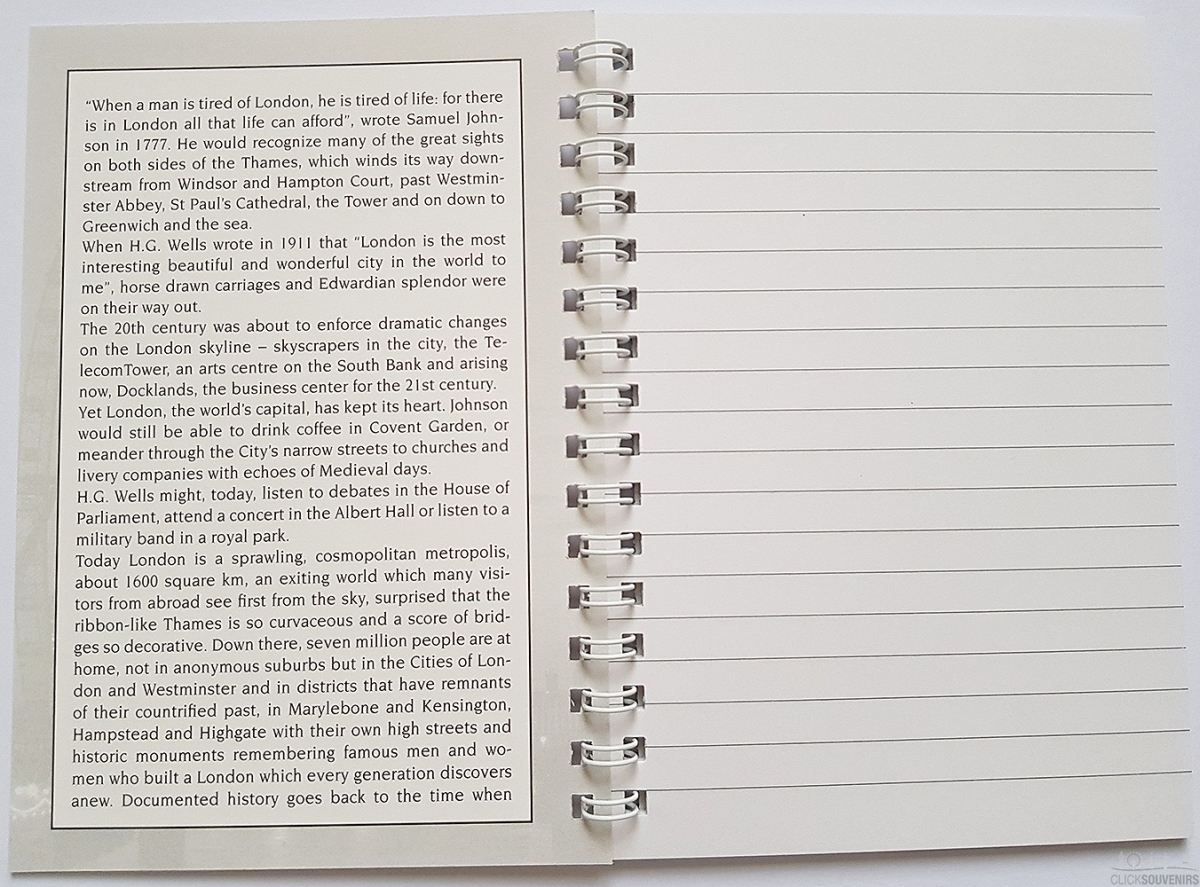 “When a man is tired of London, he is tired of life: for there
is in London all that life can afford”, wrote Samuel John-
son in 1777. He would recognize many of the great sights
on both sides of the Thames, which winds its way down-
stream from Windsor and Hampton Court, past Westmin-
ster Abbey, St Paul's Cathedral, the Tower and on down to
Greenwich and the sea.
When H.G. Wells wrote in 1911 that “London is the most
interesting beautiful and wonderful city in the world to
me”, horse drawn carriages and Edwardian splendor were
on their way out.
The 20th century was about to enforce dramatic changes
on the London skyline – skyscrapers in the city, the Te-
lecomTower, an arts centre on the South Bank and arising
now, Docklands, the business center for the 21st century.
Yet London, the world's capital, has kept its heart. Johnson
would still be able to drink coffee in Covent Garden, or
meander through the City's narrow streets to churches and
livery companies with echoes of Medieval days.
H.G. Wells might, today, listen to debates in the House of
Parliament, attend a concert in the Albert Hall or listen to a
military band in a royal park.
Today London is a sprawling, cosmopolitan metropolis,
about 1600 square km, an exiting world which many visi-
tors from abroad see first from the sky, surprised that the
ribbon-like Thames is so curvaceous and a score of brid-
ges so decorative. Down there, seven million people are at
home, not in anonymous suburbs but in the Cities of Lon-
don and Westminster and in districts that have remnants
of their countrified past, in Marylebone and Kensington,
Hampstead and Highgate with their own high streets and
historic monuments remembering famous men and wo-
men who built a London which every generation discovers
anew. Documented history goes back to the time when
CLICKSOUVENIRS